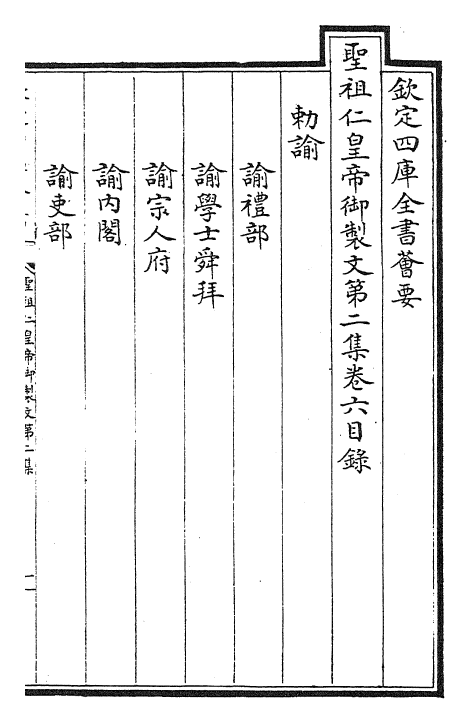 欽定四庫全書薈要
聖祖仁皇帝御製文第二集卷六目錄
勅諭
諭禮部
諭學士舜拜
諭宗人府
諭內閣
諭吏部
聖祖仁皇帝御製文第二集
一